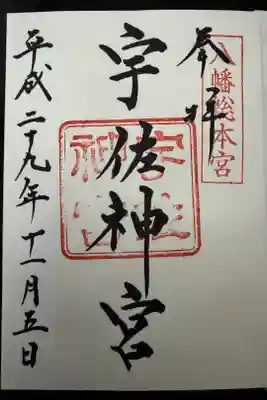 八幡総本宮
奉拝
宇佐神宮
平成二十九年十一月五日